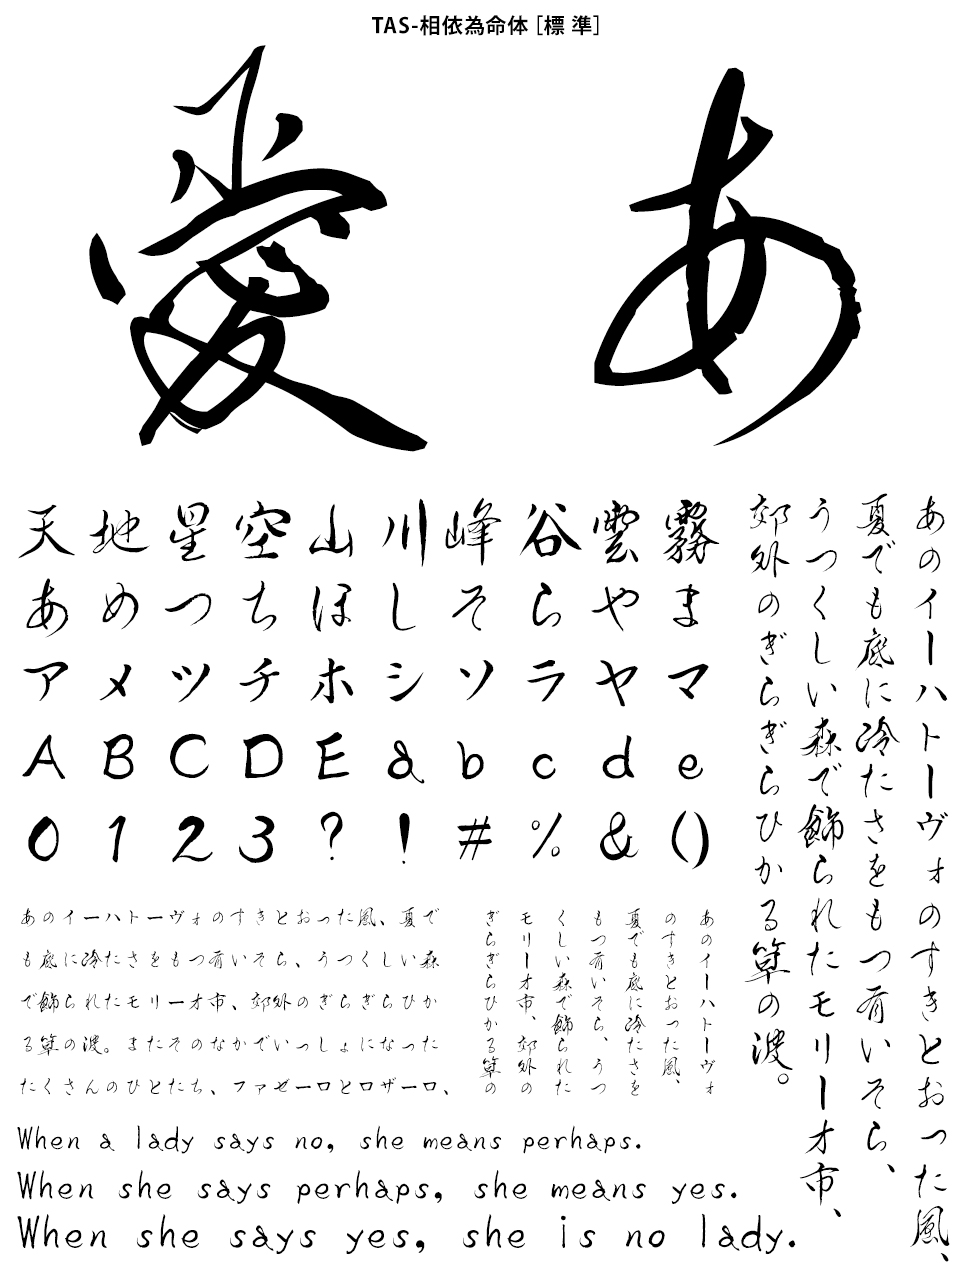 TAS-相依為命体［標 準］
愛 あ
天地星空山川峰谷雲霧
あめつちほしそらやま
アメツチホシソラヤマ
A B C D E a b c d e
0 1 2 3 ? ! # % & ()
あのイーハトーヴォのすきとおった風、
夏でも底に冷たさをもつ青いそら、
うつくしい森で飾られたモリーオ市、
郊外のぎらぎらひかる草の波。
あのイーハトーヴォのすきとおった風、夏で
も底に冷たさをもつ青いそら、うつくしい森
で飾られたモリーオ市、郊外のぎらぎらひか
る草の波。またそのなかでいっしょになった
たくさんのひとたち、ファゼーロとロザーロ、
あのイーハトーヴォ
のすきとおった風、
夏でも底に冷たさを
もつ青いそら、うつ
くしい森で飾られた
モリーオ市、郊外の
ぎらぎらひかる草の
When a lady says no, she means perhaps.
When she says perhaps, she means yes.
When she says yes, she is no lady.